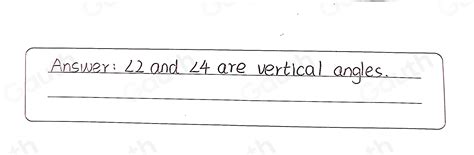 Answer: ∠2 and ∠4 are vertical angles.